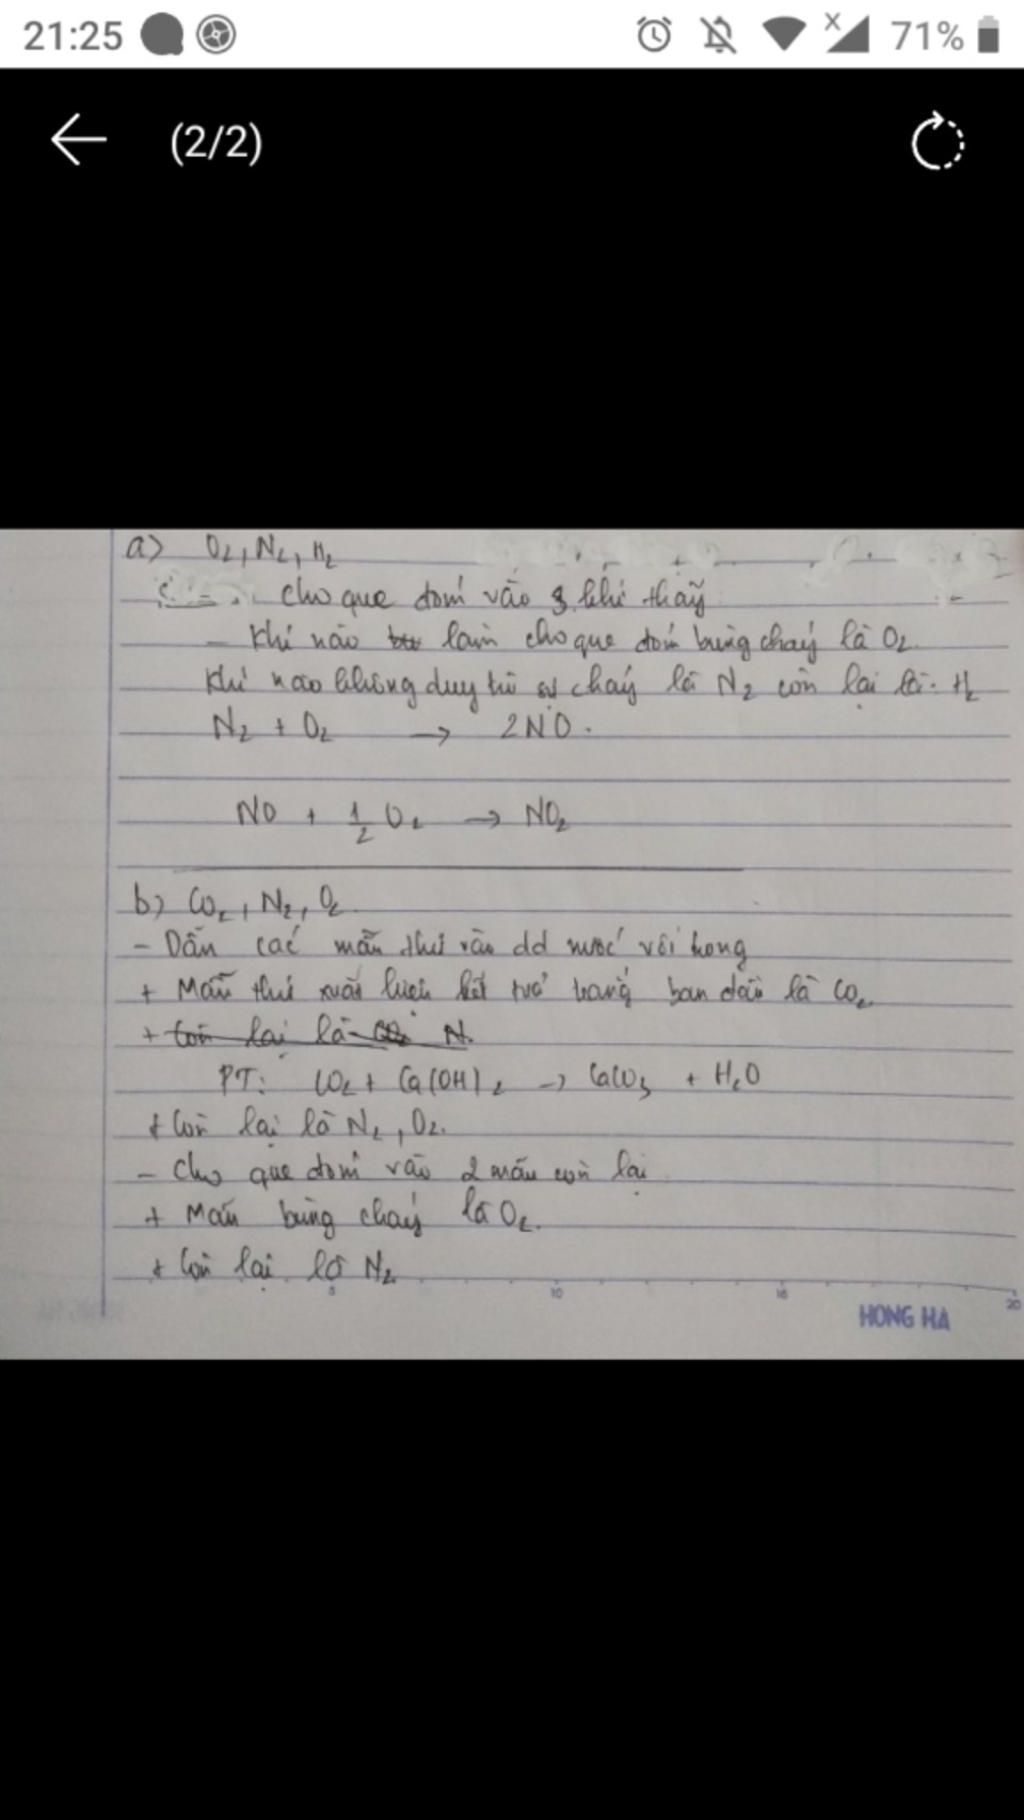 21:25
71%
(2/2)
a) O₂, N₂, H₂
cho que đóm vào 3 khí thấy
- Khí nào làm cho que đóm bùng cháy là O₂.
Khí nào không duy trì sự cháy là N₂ còn lại là H₂
N₂ + O₂ → 2NO.
NO + 1/2 O₂ → NO₂
b) CO₂, N₂, O₂
- Dẫn các mẫu thử vào dd nước vôi trong
+ Mẫu thử xuất hiện kết tủa trắng ban đầu là CO₂
+ Còn lại là N.
PT: CO₂ + Ca(OH)₂ → CaCO₃ + H₂O
+ Còn lại là N₂, O₂.
- Cho que đóm vào 2 mẫu còn lại
+ Mẫu bùng cháy là O₂.
+ Còn lại là N₂
5 10 15 20
HONG HA